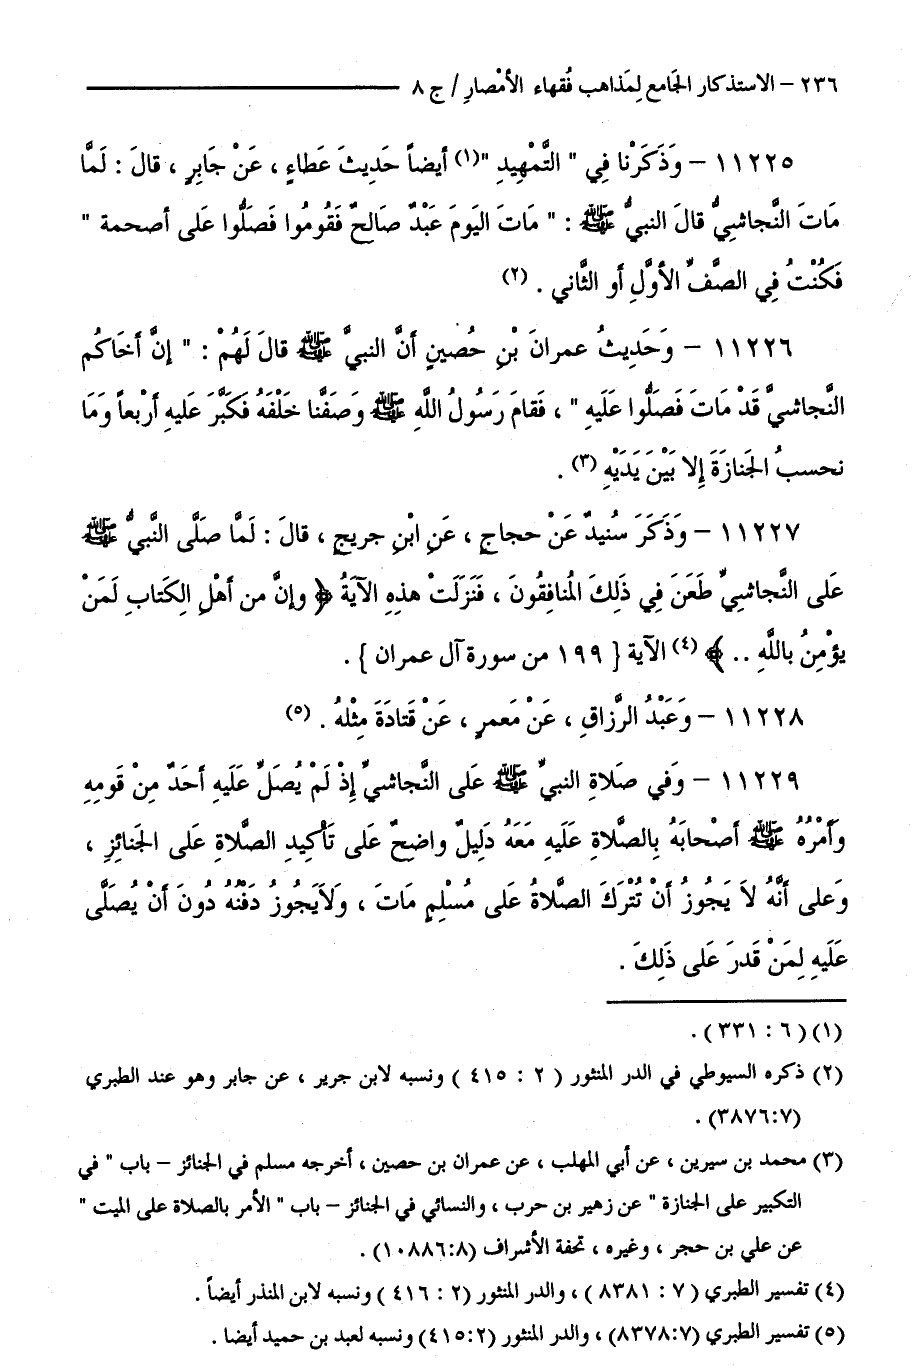 ٢٣٦ – الاستذكار الجَامع لِمَذاهب فُقهاء الأمْصارِ / ج ٨
١١٢٢٥ – وَذَكَرْنا فِي " التَّمْهِيدِ "(١) أيضاً حَدِيثَ عَطاءٍ ، عَنْ جَابِرٍ ، قالَ : لَمَّا
مَاتَ النَّجاشِيُّ قالَ النبيُّ ﷺ : " مَاتَ اليَومَ عَبْدٌ صَالحٌ فَقُومُوا فَصَلُّوا عَلى أصحمة "
فَكُنْتُ فِي الصَّفِّ الأوَّلِ أو الثَّاني . (٢)
١١٢٢٦ – وَحَدِيثُ عمرانَ بْنِ حُصينٍ أنَّ النبيَّ ﷺ قالَ لَهُمْ : " إنَّ أخَاكُم
النَّجاشيَّ قَدْ مَاتَ فَصَلُّوا عَلَيهِ " ، فَقامَ رَسُولُ اللَّهِ ﷺ وَصَفَّنا خَلْفَهُ فَكَبَّرَ عَليهِ أرْبعاً وَمَا
نحسبُ الجَنازَةَ إِلا بَيْنَ يَدَيْهِ (٣) .
١١٢٢٧ – وَذَكَرَ سُنيدٌ عَنْ حجاجٍ ، عَنِ ابْنِ جريجٍ ، قالَ : لَمَّا صلَّى النَّبيُّ ﷺ
عَلى النَّجاشيِّ طَعَنَ فِي ذَلِكَ المُنافِقُونَ ، فَنَزَلَتْ هذهِ الآيَةُ ﴿ وإنَّ من أهْلِ الكِتَابِ لَمَنْ
يؤْمِنُ باللَّهِ .. ﴾ (٤) الآية { ١٩٩ من سورة آل عمران } .
١١٢٢٨ – وَعَبْدُ الرَّزاقِ ، عَنْ مَعمرٍ ، عَنْ قَتادَةَ مِثْلهُ . (٥)
١١٢٢٩ – وَفي صَلاةِ النبيِّ ﷺ عَلى النَّجاشيِّ إِذْ لَمْ يُصَلِّ عَلَيهِ أحَدٌ مِنْ قَومِهِ
وَأمْرُهُ ﷺ أصْحابَهُ بِالصَّلاةِ عَلَيهِ مَعَهُ دَلِيلٌ واضِحٌ عَلى تَأكِيدِ الصَّلاةِ عَلى الجَنائِزِ ،
وَعَلى أنَّهُ لاَ يَجُوزُ أنْ تُتْرَكَ الصَّلاةُ عَلى مُسْلِمٍ مَاتَ ، وَلاَيَجُوزُ دَفْنُهُ دُونَ أنْ يُصَلَّى
عَلَيهِ لِمَنْ قَدرَ عَلى ذَلِكَ .
(١) ( ٦ : ٣٣١ ) .
(٢) ذكره السيوطي في الدر المنثور ( ٢ : ٤١٥ ) ونسبه لابن جرير ، عن جابر وهو عند الطبري
(٣٨٧٦:٧) .
(٣) محمد بن سيرين ، عن أبي المهلب ، عن عمران بن حصين ، أخرجه مسلم في الجنائز – باب " في
التكبير على الجنازة " عن زهير بن حرب ، والنسائي في الجنائز – باب " الأمر بالصلاة على الميت "
عن علي بن حجر ، وغيره ، تحفة الأشراف (١٠٨٨٦:٨) .
(٤) تفسير الطبري ( ٧ : ٨٣٨١ ) ، والدر المنثور (٢ : ٤١٦ ) ونسبه لابن المنذر أيضاً .
(٥) تفسير الطبري (٨٣٧٨:٧) ، والدر المنثور (٤١٥:٢) ونسبه لعبد بن حميد أيضا .